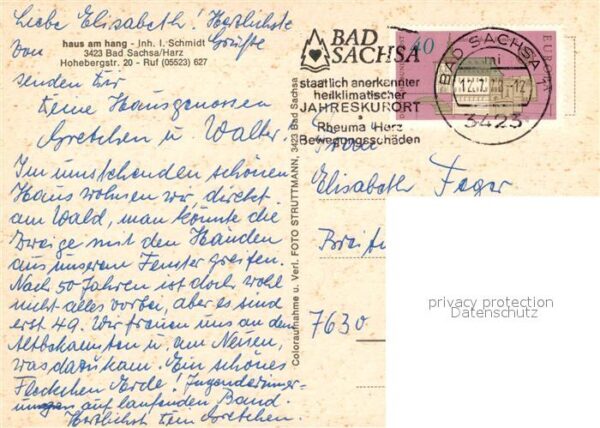 Liebe Elisabeth! Herzlichste
von Grüße
haus am hang - Inh. I. Schmidt
3423 Bad Sachsa/Harz
Hohebergstr. 20 - Ruf (05523) 627
senden Dir
Deine Hausgenossen
Gretchen u Walter.
Im umstehenden schönen
Haus wohnen wir, direkt
am Wald, man könnte die
Zweige mit den Händen
aus unserem Fenster greifen.
Nach 50 Jahren ist doch wohl
nicht alles vorbei, aber es sind
erst 49. Wir freuen uns an dem
Altbekannten u. am Neuen,
was dazukam. Ein schönes
Fleckchen Erde! Jugenderinner-
ungen auf laufenden Band.
Herzlichst Dein Gretchen.
Coloraufnahme u. Verl. FOTO STRUTTMANN, 3423 Bad Sachsa
BAD
SACHSA
staatlich anerkannter
heilklimatischer
JAHRESKURORT
Rheuma Herz
Bewegungsschäden
40
EUROPA
BAD SACHSA
3423
Frau
Elisabeth Feger
7630
privacy protection
Datenschutz